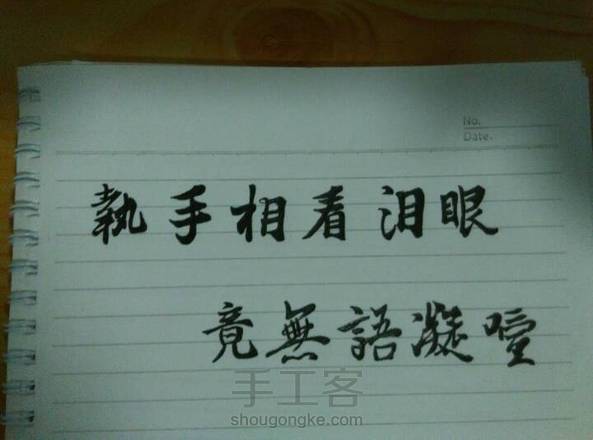 No.
Date.
執手相看泪眼
竟無語凝噎
手工客
shougongke.com